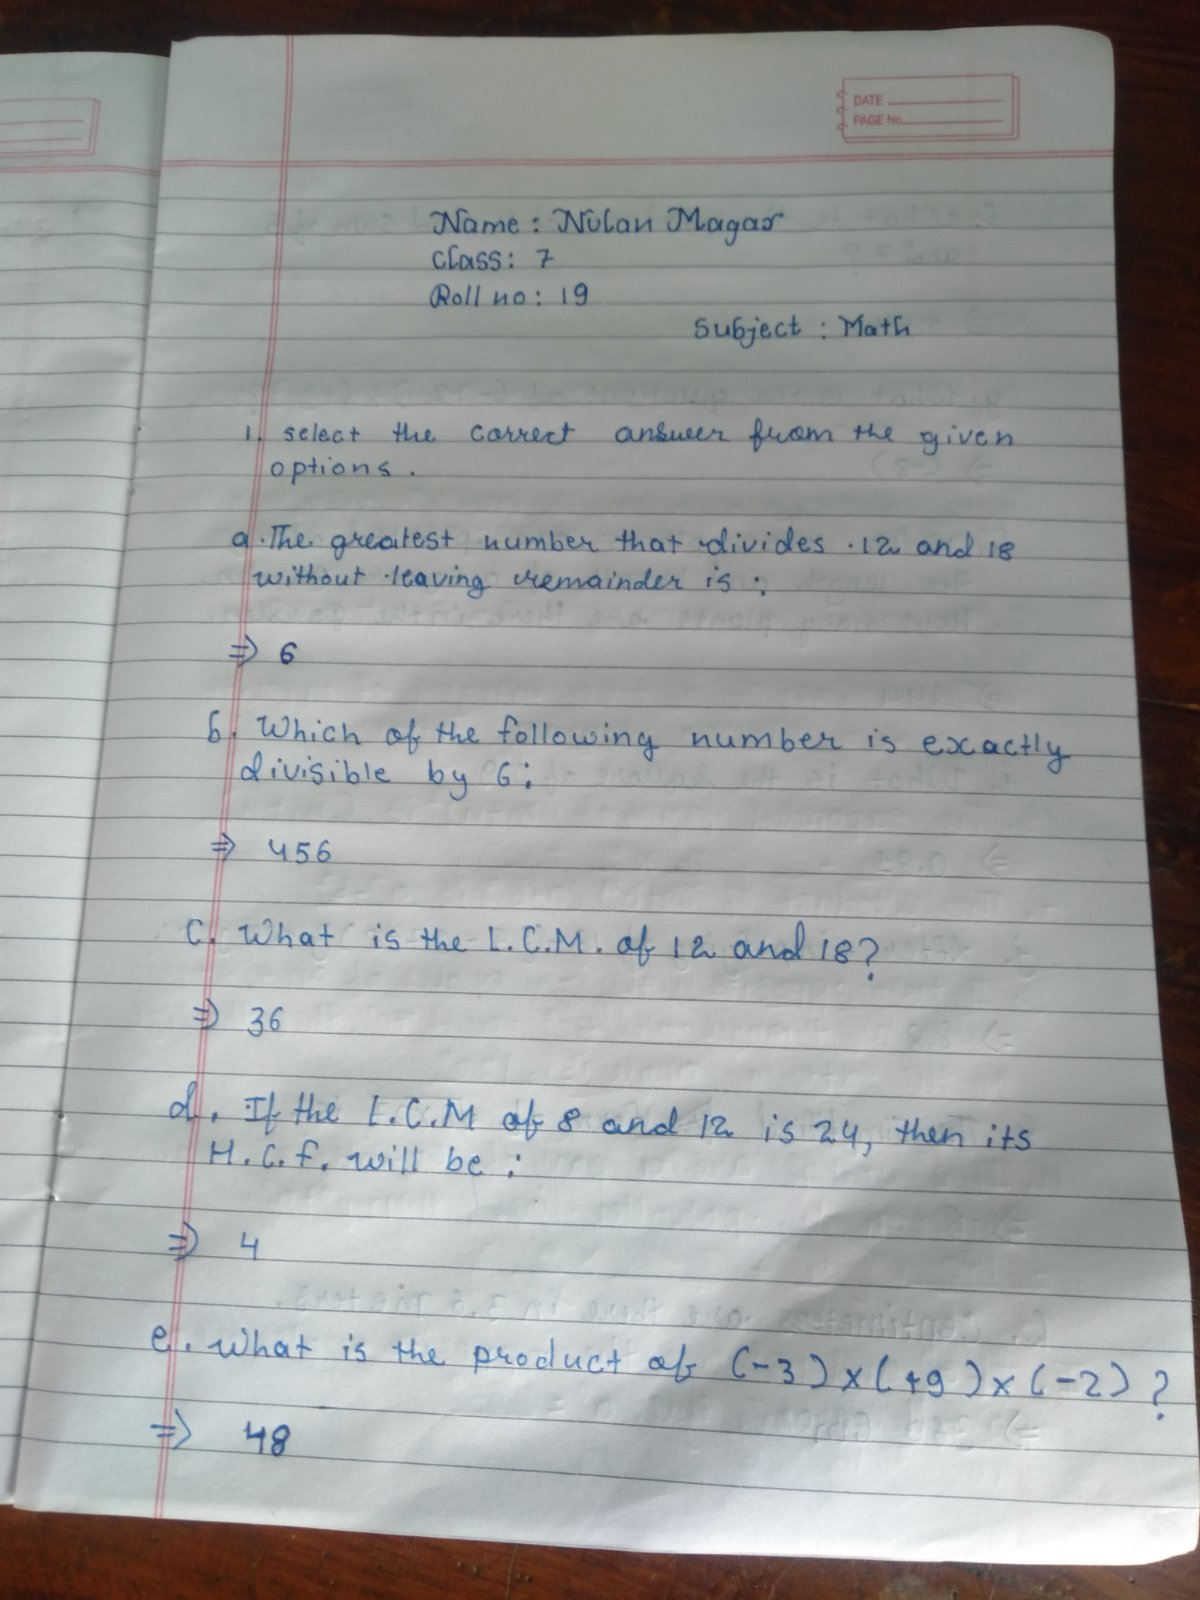 DATE
PAGE No.
Name : Nulan Magar
Class : 7
Roll no : 19
Subject : Math
1. select the correct answer from the given
options.
a. The greatest number that divides 12 and 18
without leaving remainder is :
⇒ 6
b. Which of the following number is exactly
divisible by 6 :
⇒ 456
c. What is the L.C.M. of 12 and 18?
⇒ 36
d. If the L.C.M of 8 and 12 is 24, then its
H.C.f. will be :
⇒ 4
e. What is the product of (-3)×(+9)×(-2)?
⇒ 48